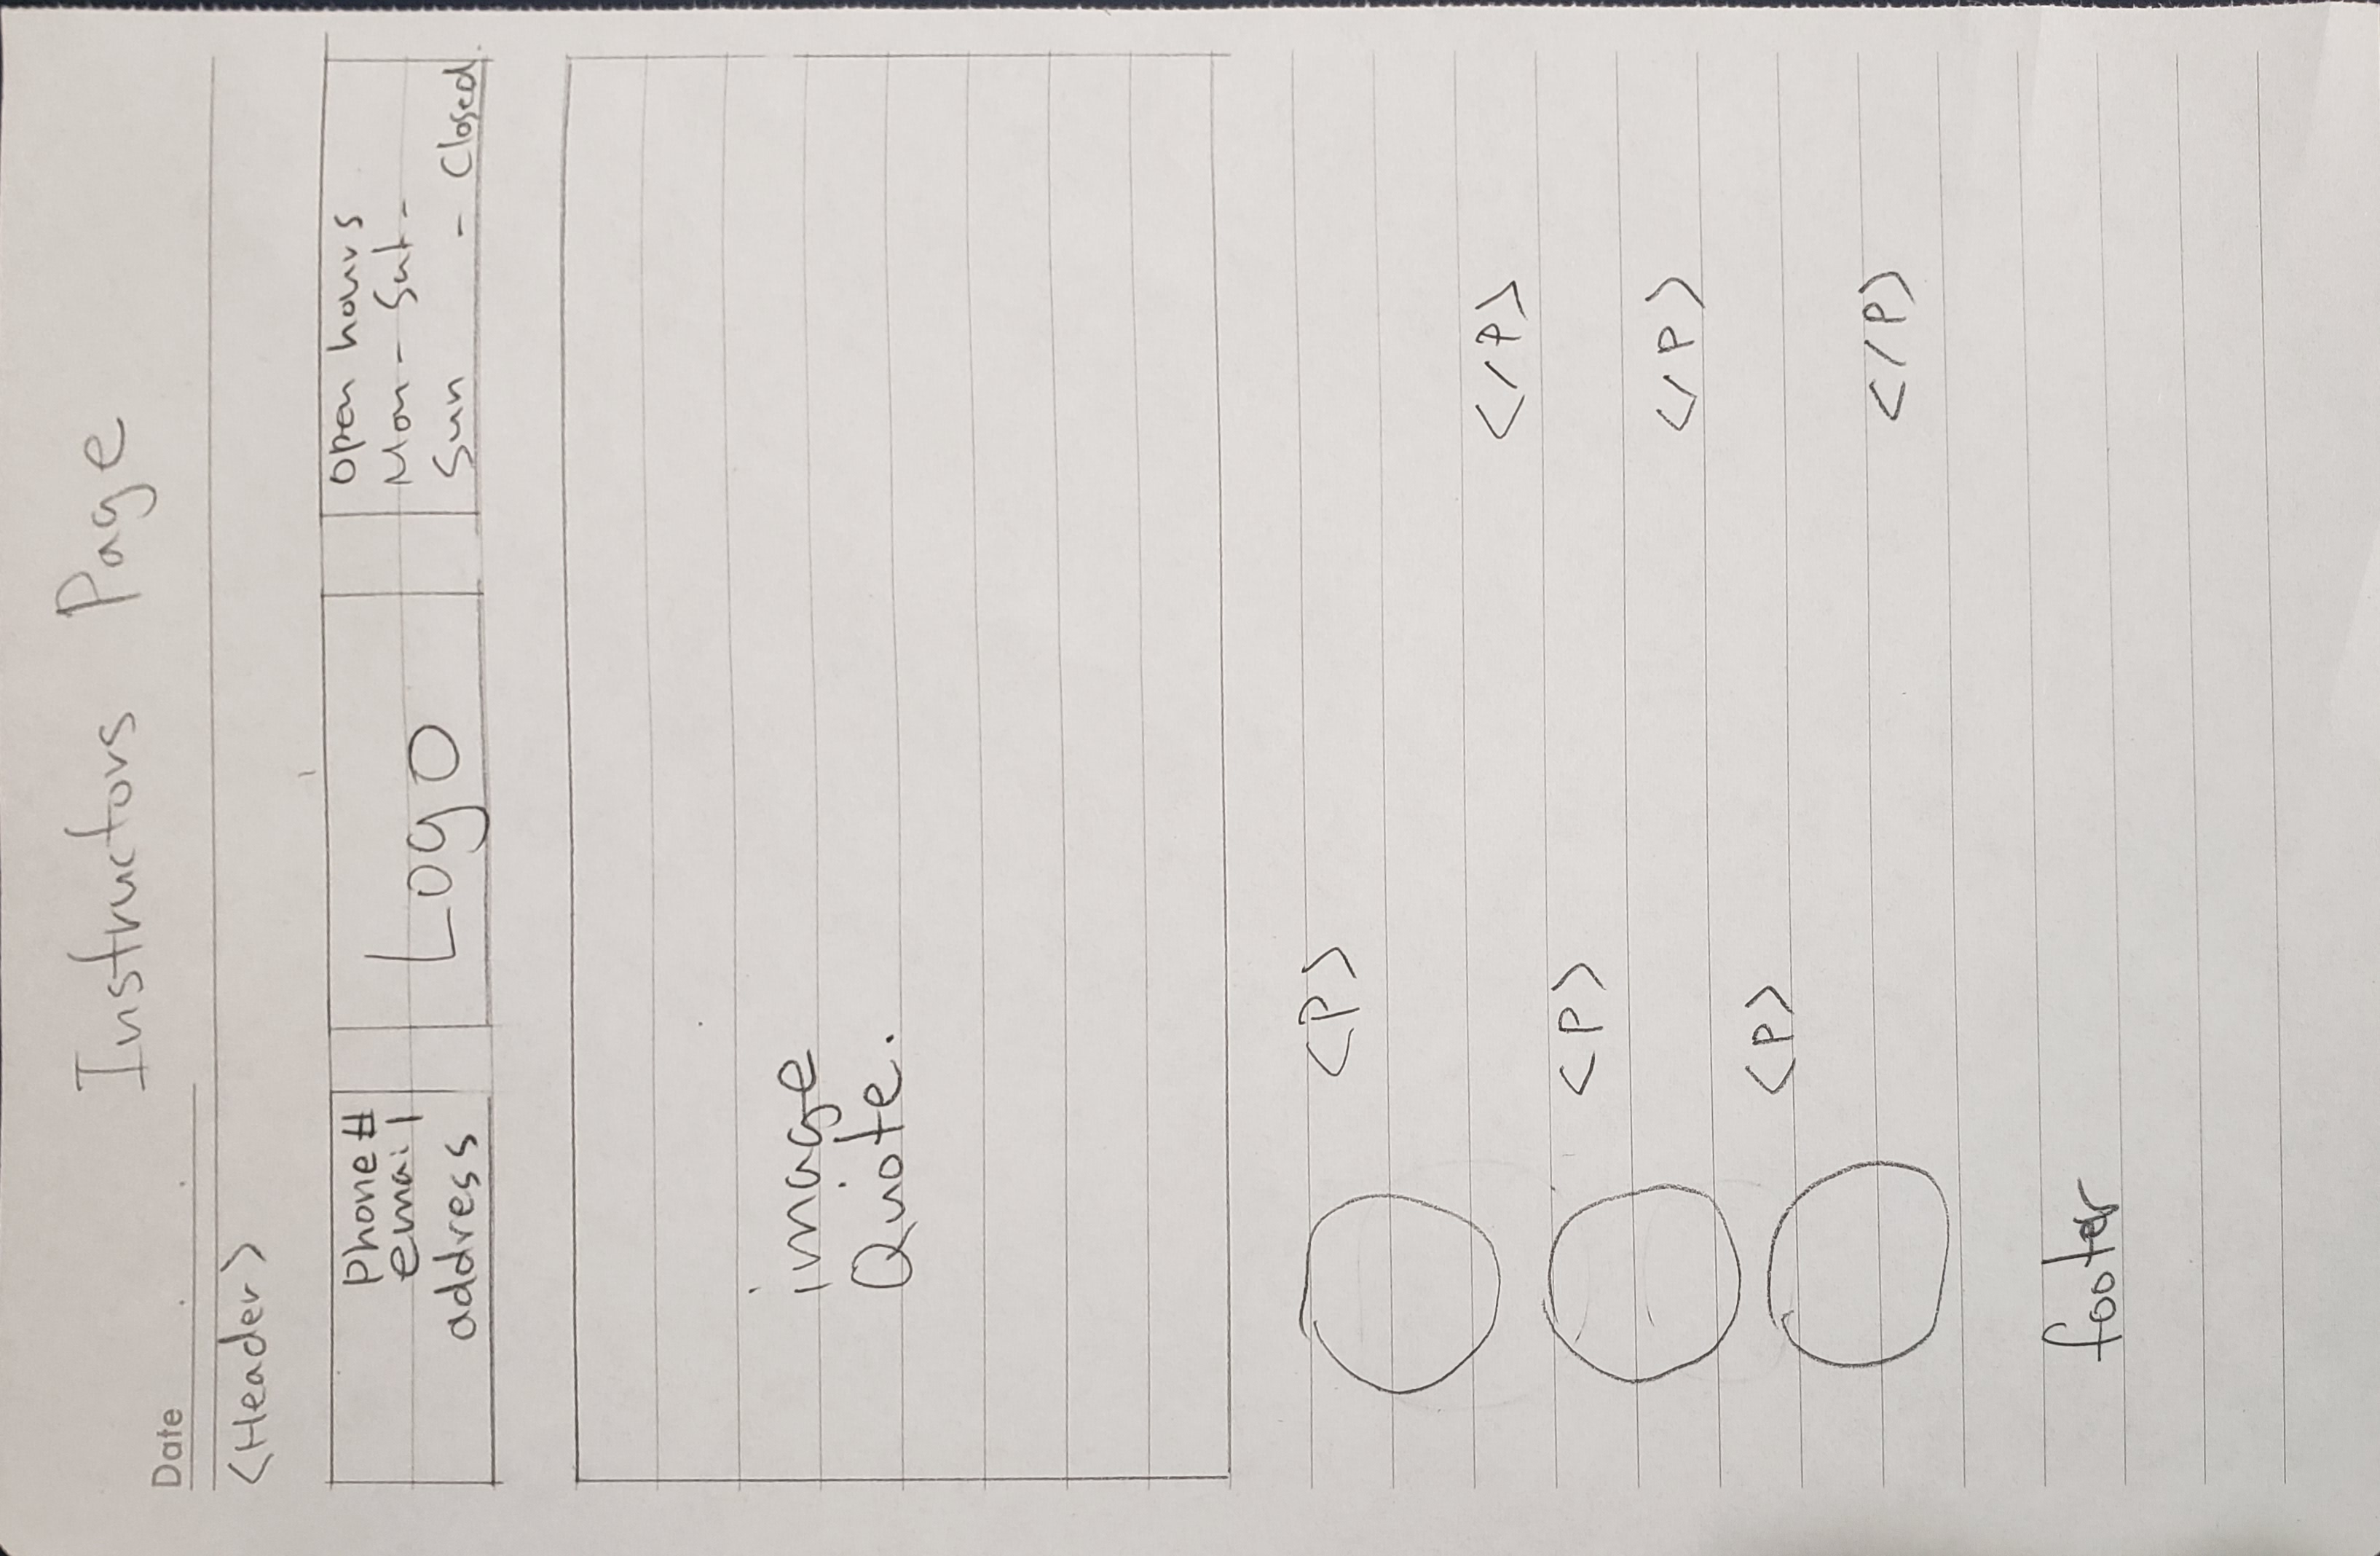 Instructors Page
Date . .
<Header>
Phone #
email
address
Logo
Open hours
Mon - Sat -
Sun - Closed
image
Quote.
<P>
</P>
<P>
</P>
<P>
</P>
footer